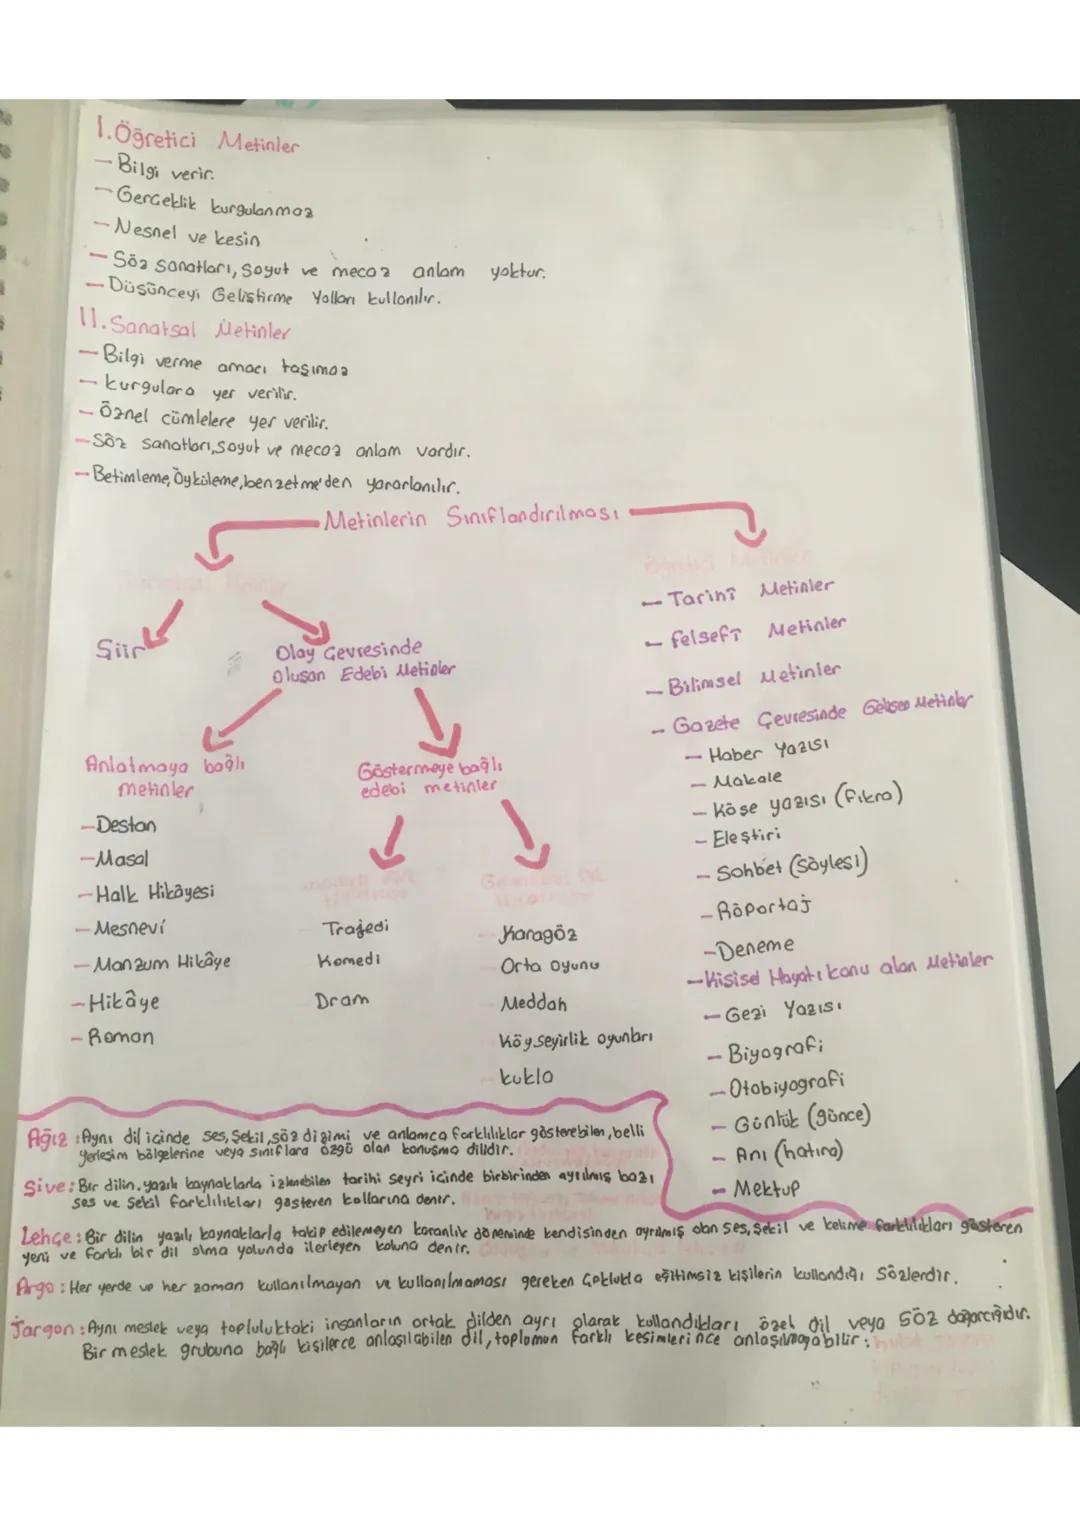 I.Öğretici Metinler
- Bilgi verir.
- Gerçeklik kurgulanmaz
- Nesnel ve kesin
- Söz sanatları, soyut ve mecaz anlam yoktur.
- Düşünceyi Geliştirme Yolları kullanılır.
II.Sanatsal Metinler
- Bilgi verme amacı taşımaz
- kurgulara yer verilir.
- Öznel cümlelere yer verilir.
- Söz sanatları, soyut ve mecaz anlam vardır.
- Betimleme, Öyküleme, benzetme'den yararlanılır.
Metinlerin Sınıflandırılması
Öğretici Metinler
Şiir
Olay Çevresinde
Oluşan Edebi Metinler
Anlatmaya bağlı
metinler
- Destan
- Masal
- Halk Hikâyesi
- Mesnevi
- Manzum Hikâye
- Hikâye
- Roman
Göstermeye bağlı
edebi metinler
Trajedi
Komedi
Dram
- Karagöz
- Orta oyunu
- Meddah
- Köy seyirlik oyunları
- kukla
- Tarihî Metinler
- Felsefî Metinler
- Bilimsel Metinler
- Gazete Çevresinde Gelişen Metinler
- Haber Yazısı
- Makale
- Köşe yazısı (fıkra)
- Eleştiri
- Sohbet (söyleşi)
- Röportaj
- Deneme
- Kişisel Hayatı konu alan Metinler
- Gezi Yazısı
- Biyografi
- Otobiyografi
- Günlük (günce)
- Anı (hatıra)
- Mektup
Ağız : Aynı dil içinde ses, şekil, söz dizimi ve anlamca farklılıklar gösterebilen, belli
yerleşim bölgelerine veya sınıflara özgü olan konuşma dilidir.
Şive : Bir dilin. yazılı kaynaklarla izlenebilen tarihi seyri içinde birbirinden ayrılmış bazı
ses ve şekil farklılıkları gösteren kollarına denir.
Lehçe : Bir dilin yazılı kaynaklarla takip edilemeyen karanlık döneminde kendisinden ayrılmış olan ses, şekil ve kelime farklılıkları gösteren
yeni ve farklı bir dil olma yolunda ilerleyen koluna denir.
Argo : Her yerde ve her zaman kullanılmayan ve kullanılmaması gereken çoklukla eğitimsiz kişilerin kullandığı sözlerdir.
Jargon : Aynı meslek veya topluluktaki insanların ortak dilden ayrı olarak kullandıkları özel dil veya söz dağarcığıdır.
Bir meslek grubuna bağlı kişilerce anlaşılabilen dil, toplumun farklı kesimlerince anlaşılmayabilir.